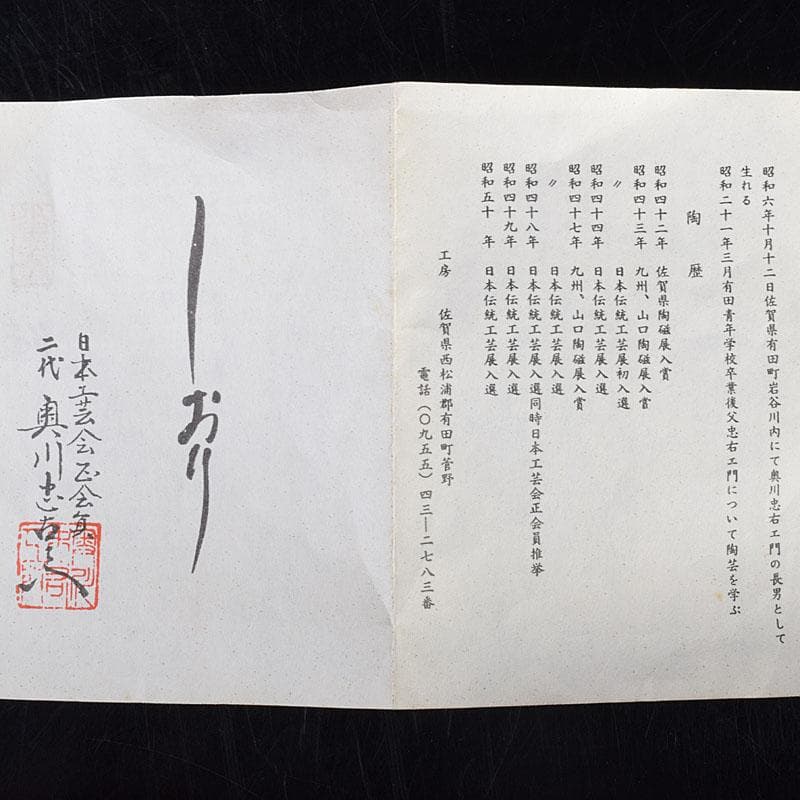 昭和六年十月十二日佐賀県有田町岩谷川内にて奥川忠右ェ門の長男として
生れる
昭和二十一年三月有田青年学校卒業後父忠右ェ門について陶芸を学ぶ
陶歴
昭和四十二年 佐賀県陶磁展入賞
昭和四十三年 九州、山口陶磁展入賞
〃 日本伝統工芸展初入選
昭和四十四年 日本伝統工芸展入選
昭和四十七年 九州、山口陶磁展入賞
〃 日本伝統工芸展入選
昭和四十八年 日本伝統工芸展入選同時日本工芸会正会員推挙
昭和四十九年 日本伝統工芸展入選
昭和五十年 日本伝統工芸展入選
工房 佐賀県西松浦郡有田町菅野
電話(〇九五五)四三―二七八三番
しおり
日本工芸会正会員
二代 奥川忠右エ門